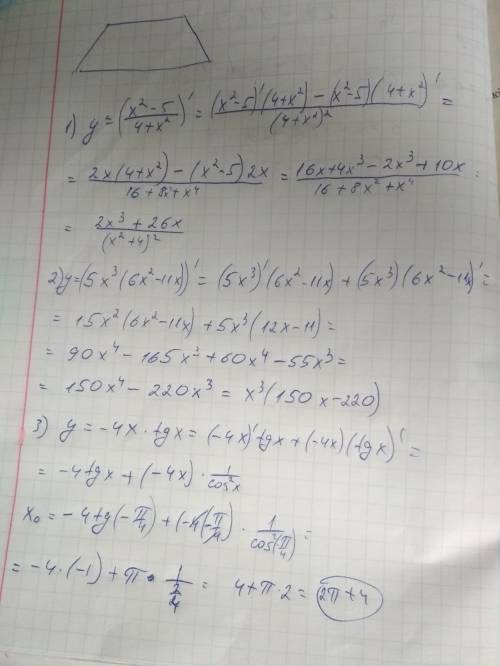 1) y = (x²-5 / 4+x²)' = (x²-5)'(4+x²) - (x²-5)(4+x²)' / (4+x²)² =
= 2x(4+x²) - (x²-5)2x / 16+8x²+x⁴ = 16x+4x³-2x³+10x / 16+8x²+x⁴ =
= 2x³+26x / (x²+4)²
2) y=(5x³(6x²-11x))' = (5x³)'(6x²-11x) + (5x³)(6x²-11x)' =
= 15x²(6x²-11x) + 5x³(12x-11) =
= 90x⁴ - 165x³ + 60x⁴ - 55x³ =
= 150x⁴ - 220x³ = x³(150x-220)
3) y = -4x · tgx = (-4x)' tgx + (-4x)(tgx)' =
= -4tgx + (-4x) · 1/cos²x
x₀ = -4tg(-π/4) + (-4(-π/4)) · 1/cos²(-π/4) =
= -4·(-1) + π · 1/(2/4) = 4+π·2 = 2π+4